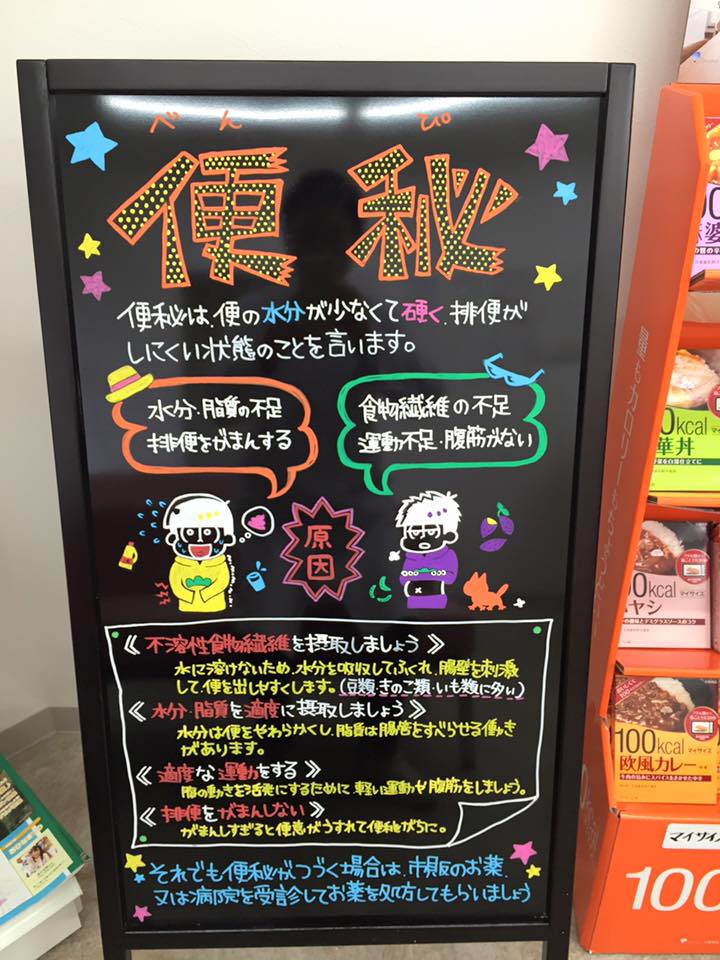 べん ぴ
便秘
便秘は、便の水分が少なくて硬く、排便が
しにくい状態のことを言います。
水分・脂質の不足
排便をがまんする
食物繊維の不足
運動不足・腹筋がない
原因
《 不溶性食物繊維を摂取しましょう 》
水に溶けないため、水分を吸収してふくれ、腸壁を刺激
して、便を出しやすくします。(豆類・きのこ類・いも類に多い)
《 水分・脂質を適度に摂取しましょう 》
水分は便をやわらかくし、脂質は腸管をすべらせる働き
があります。
《 適度な運動をする 》
腸の動きを活発にするために、軽い運動や腹筋をしましょう。
《 排便をがまんしない 》
がまんしすぎると便意がうすれて便秘がちに。
それでも便秘がつづく場合は、市販のお薬、
又は病院を受診してお薬を処方してもらいましょう
婆
kcal マイサイズ
華丼
kcal
マイサイズ
ヤシ
100kcal
マイサイズ
欧風カレー
マイサイズ
100